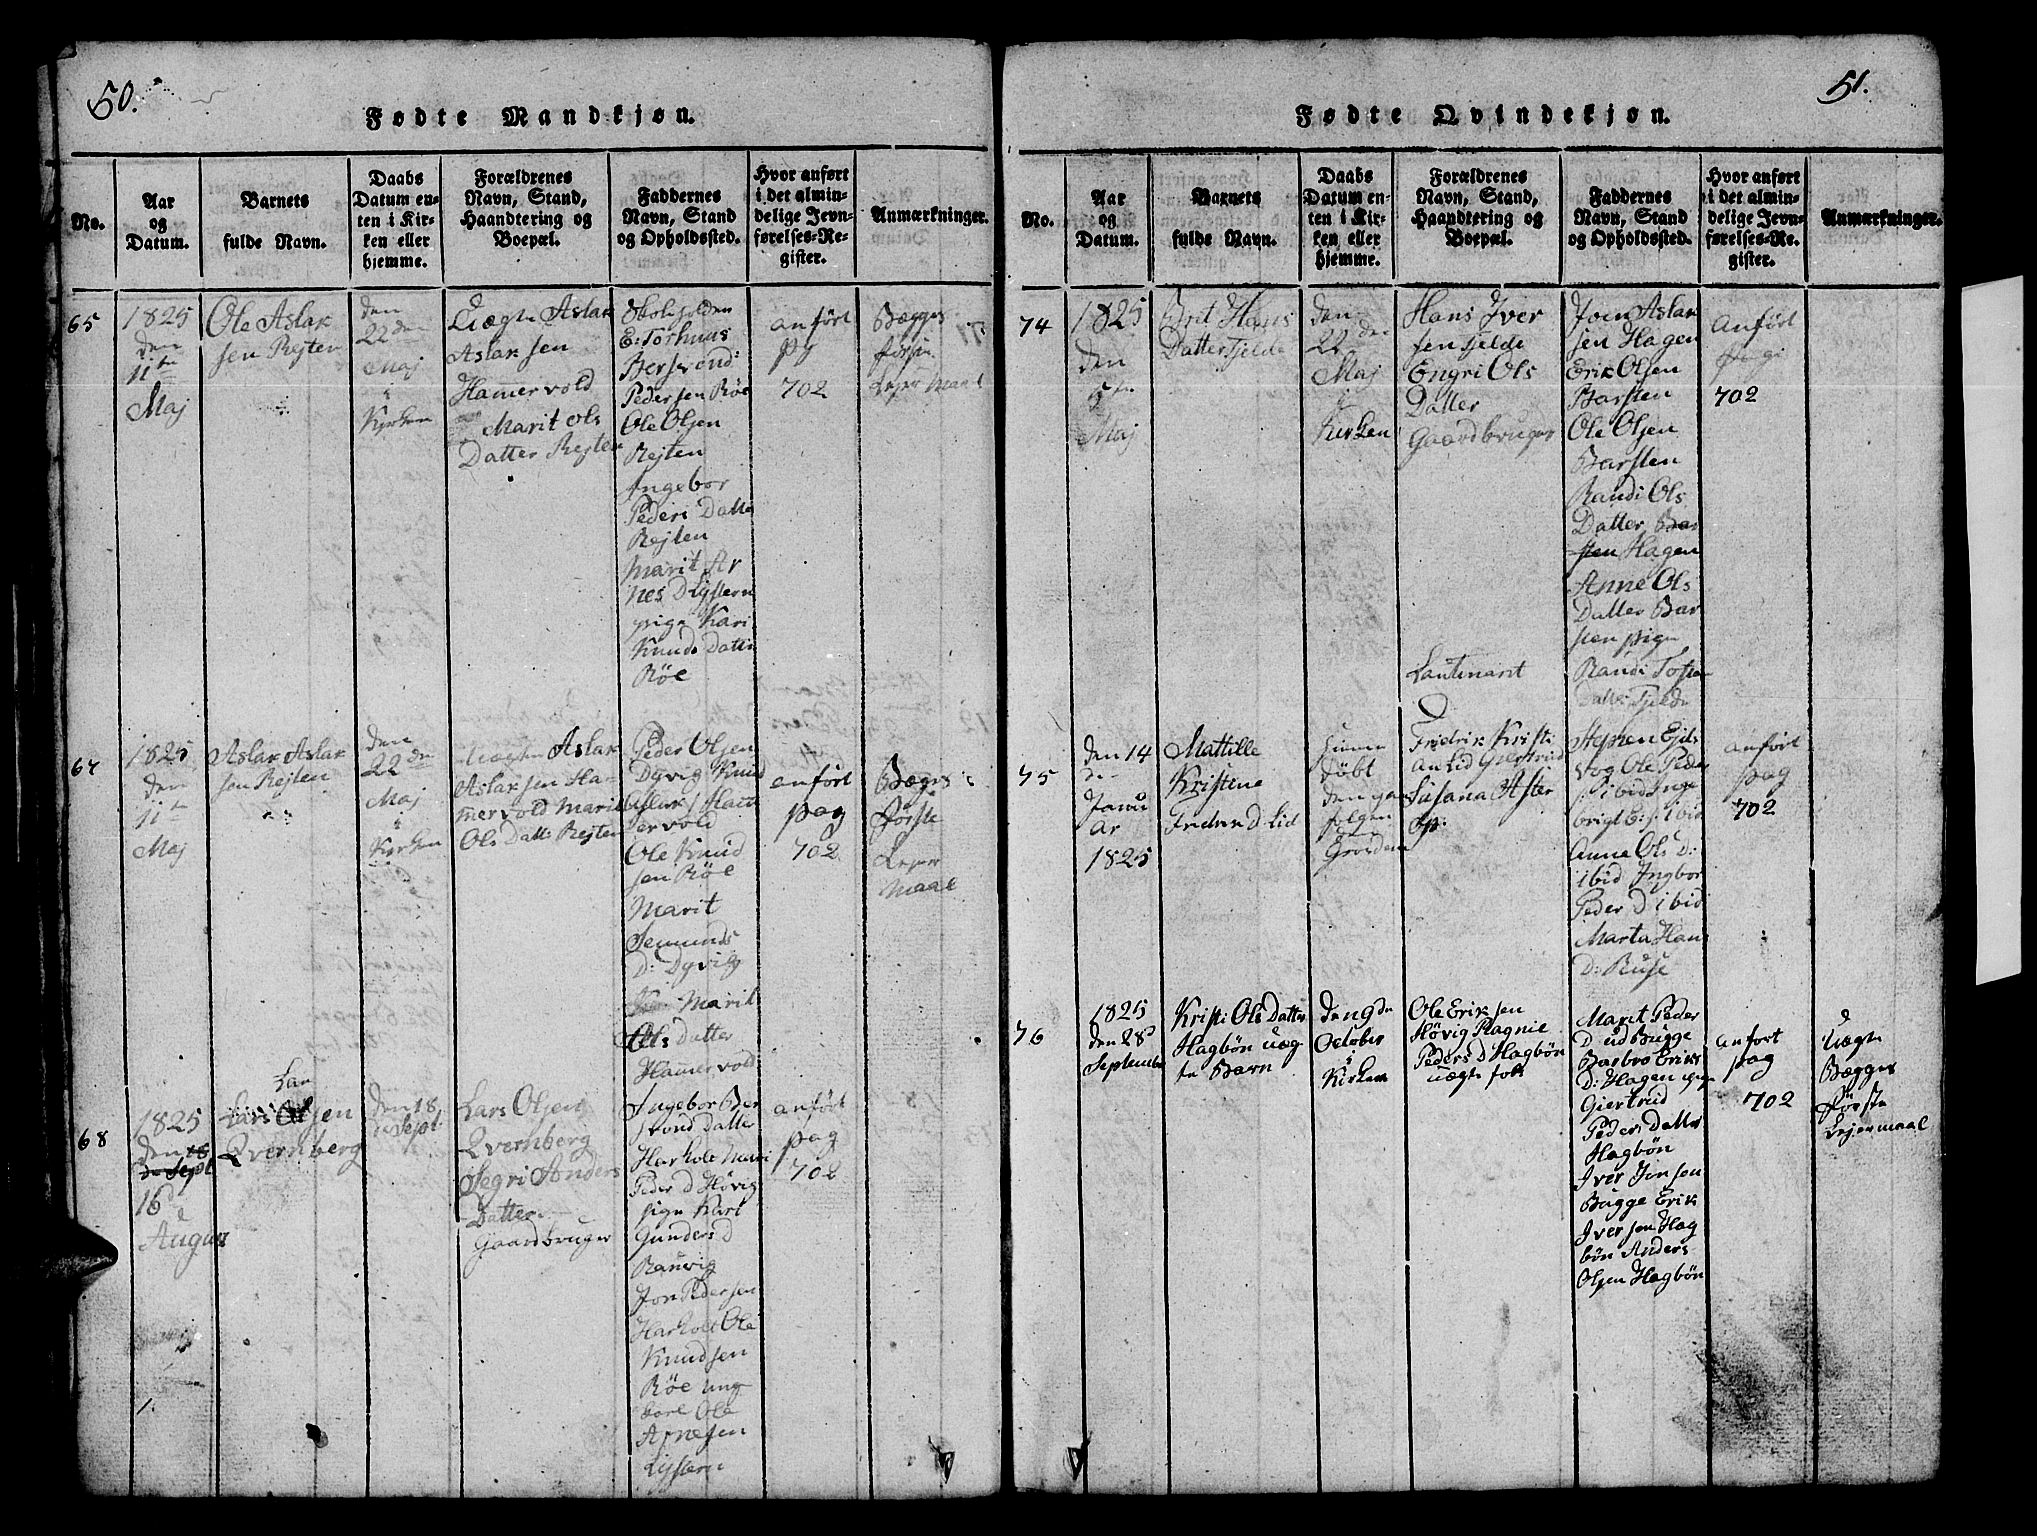 50.
Fødte Mandkjøn.
No.
Aar
og
Datum.
Barnets
fulde Navn.
Daabs
Datum en-
ten i Kir-
ken eller
hjemme.
Forældrenes
Navn, Stand,
Haandtering og
Boepæl.
Faddernes
Navn, Stand
og Opholdssted.
Hvor anført
i det almin-
delige Jevn-
førelses-Re-
gister.
Anmærkninger.
65
1825
den
11te
Maj
Ole Aslak
sen Rejten
den
22den
Maj
i
Kirken
Uægte Aslak
Aslaksen
Hamervold
Marit Ols
Datter Rejten
E: Torhuus
Bersvend
Pedersen Röe
Ole Olsen
Rejten
Ingebor
Peders Datter
Rejten
Marit Ar
nes D Lystern
pige Kari
Knuds Datter
Röe
anfört
pag
702
Bægges
förste
Lejer Maal
67
1825
den
11te
Maj
Aslak Aslak
sen Rejten
den
22de
Maj
i
Kirken
Uægte Aslak
Aslaksen Ha-
mervold Marit
Ols Datt: Rejten
Peder Olsen
Dyvig Knud
Aslaks: Ham
ervold
Ole Knud
sen Röe
Marit
Semunds
D: Dyvig
Marit
Ols Datter
Hamervold
anfört
pag
702
Bægges
Förste
Lejer
Maal
68
1825
den 18
de Sept
16
August
Lan
Lars Olsen
Qvernberg
den 18
Sept:
Lars Olsen
Qvernberg
Segri Anders
Datter
Gaardbruger
Ingebor Ber
svend Datter
Harholt Mari
Peder D Hövig
pige Kari
Gunders D
Ranvig
Jon Pedersen
Harholt Ole
Knudsen
Röe ung
karl Ole
Arnesen
Lystern
anfört
pag
702
51.
Fødte Qvindekjøn.
No.
Aar
og
Datum.
Barnets
fulde Navn.
Daabs
Datum en-
ten i Kir-
ken eller
hjemme.
Forældrenes
Navn, Stand,
Haandtering og
Boepæl.
Faddernes
Navn, Stand
og Opholdssted.
Hvor anført
i det almin-
delige Jevn-
førelses-Re-
gister.
Anmærkninger.
74
1825
den
5te
Maj
Brit Hans
Datter Tjelde
den
22de
Maj
i
Kirken
Hans Iver
sen Tjelde
Engri Ols
Datter
Gaardbruger
Joen Aslak
sen Hagen
Erik Olsen
Barsten
Ole Olsen
Barsten
Randi Ols
Datter Bar
sten Hagen
Anne Ols
Datter Bar
sten pige
Randi Tosten
Datter Tjelde
anfört
pagi
702
75
den 14
de
Janu
ar
1825
Mattille
Kristine
Fredrik D. Lid
hjeme
döbt
Lautenant
Fridrik Kristi
an Lid Giertrud
Susana Aster
op:
Stephen Ejds
vog Ole Peder
s ibid Inge
brigt E: s ibid
Anne Ols D:
ibid Ingbor
Peder D ibid
Marta Hans
D: Ruse
anfört
pag
702
76
1825
den 28
September
Kristi Ols Datter
Hagbön uæg
te Barn
den 9de
October
i
Kirken
Ole Eriksen
Hövig Ragnie
Peders D Hagbön
uægte folk
Marit Peder
D ud Bugge
Barbro Eriks
D: Hagen pige
Giertrud
Peders Datter
Hagbön
Iver Jonsen
Bugge Erik
Iversen Hag
bön Anders
Olsen Hagbön
anfört
pag
702
Uægte
Bægges
Förste
Lejermaal